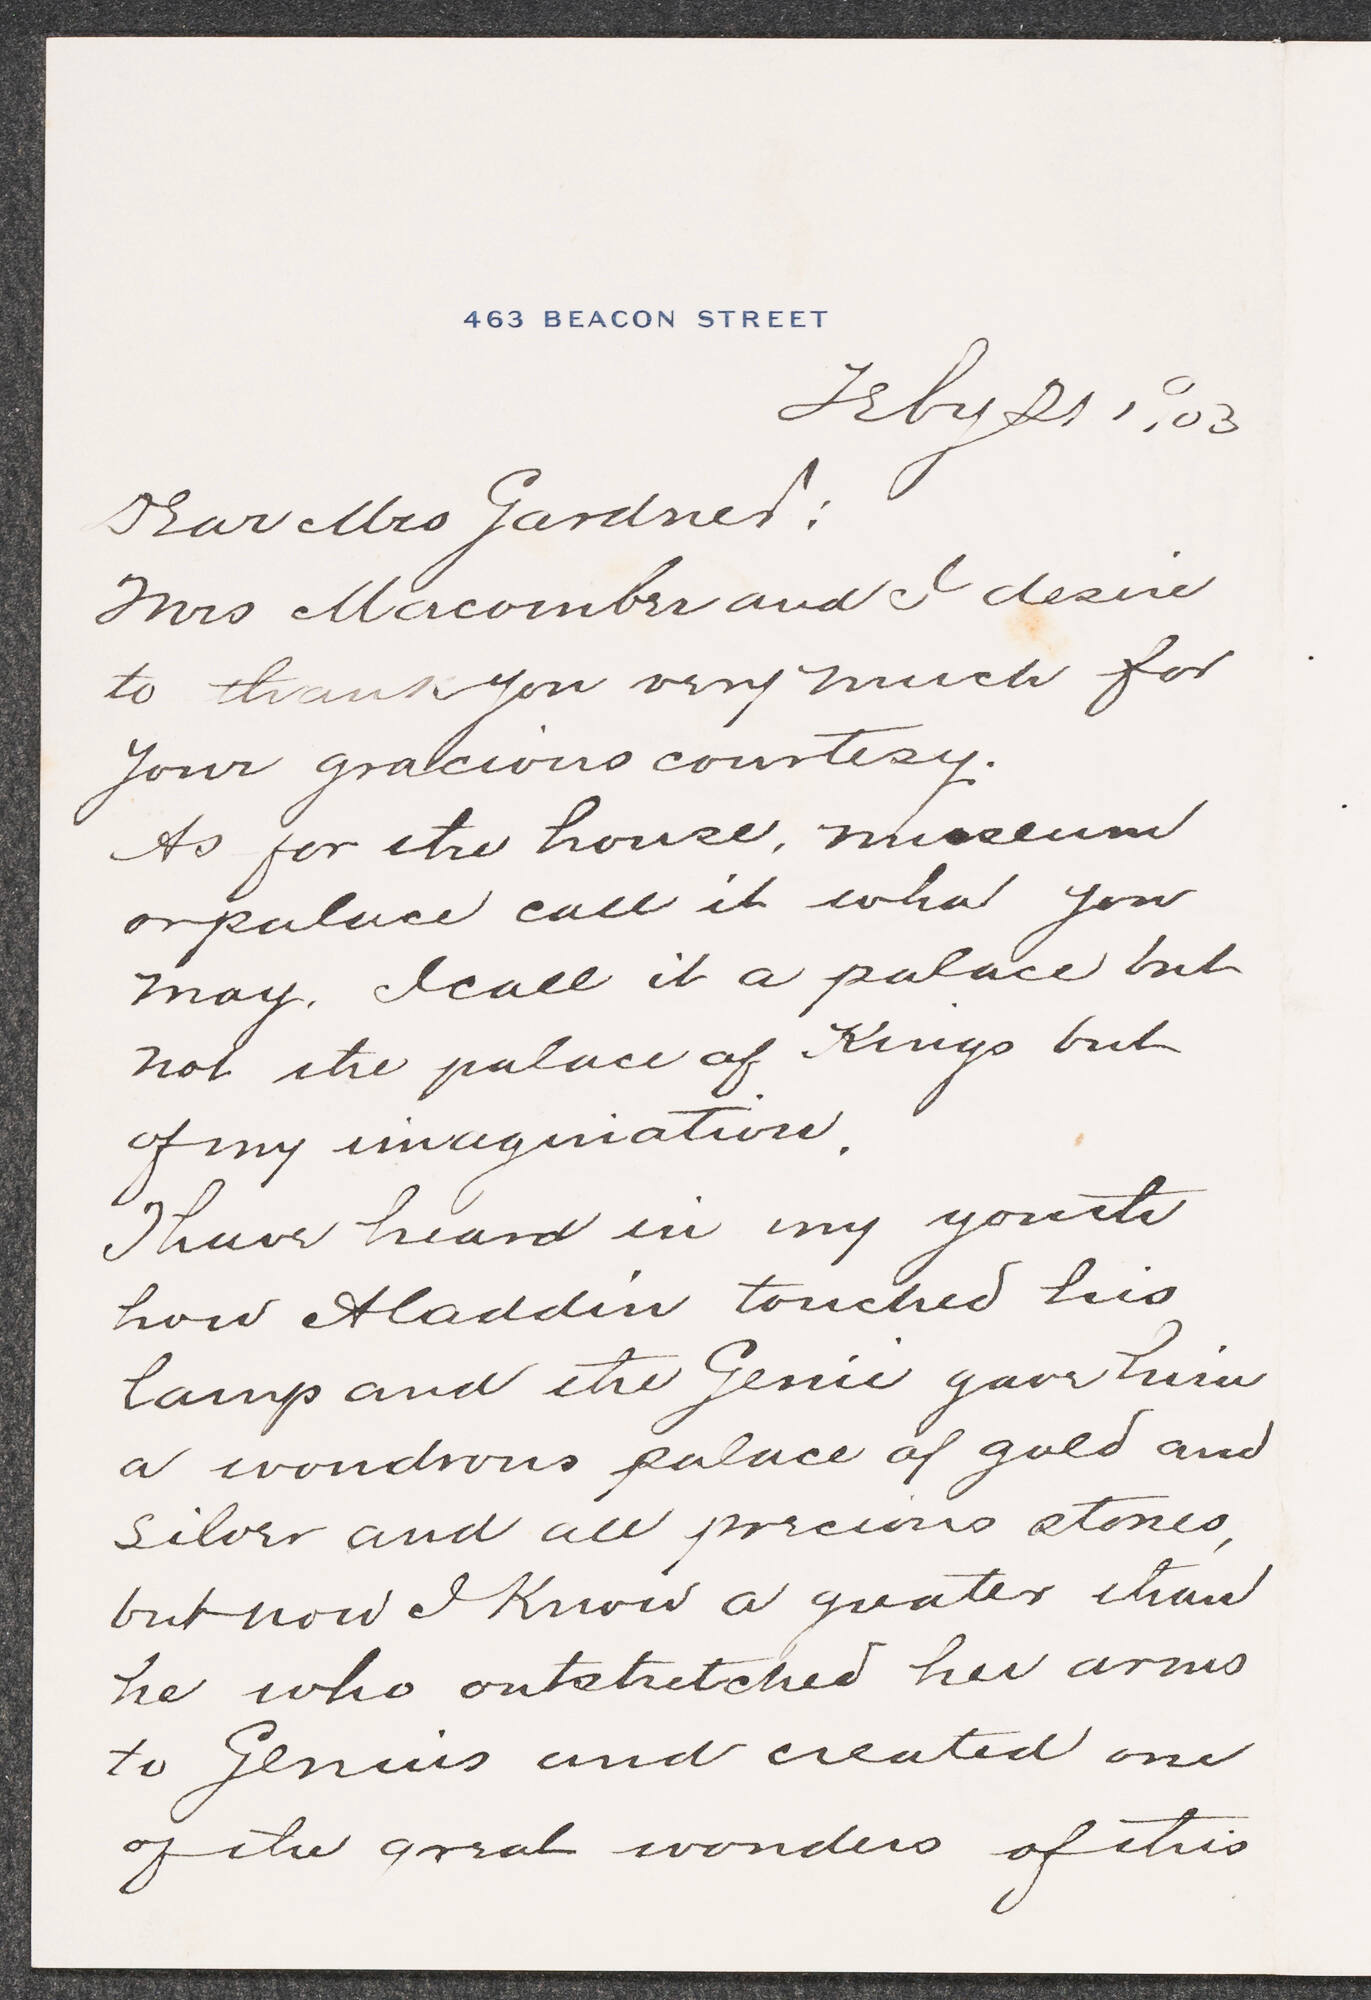 463 BEACON STREET
Feby 21 1903
Dear Mrs Gardner:
Mrs Macomber and I desire
to thank you very much for
your gracious courtesy.
As for the house, museum
or palace call it what you
may. I call it a palace but
not the palace of Kings but
of my imagination.
I have heard in my youth
how Aladdin touched his
lamp and the Genii gave him
a wondrous palace of gold and
silver and all precious stones,
but now I know a greater than
he who outstretched her arms
to Genius and created one
of the great wonders of this